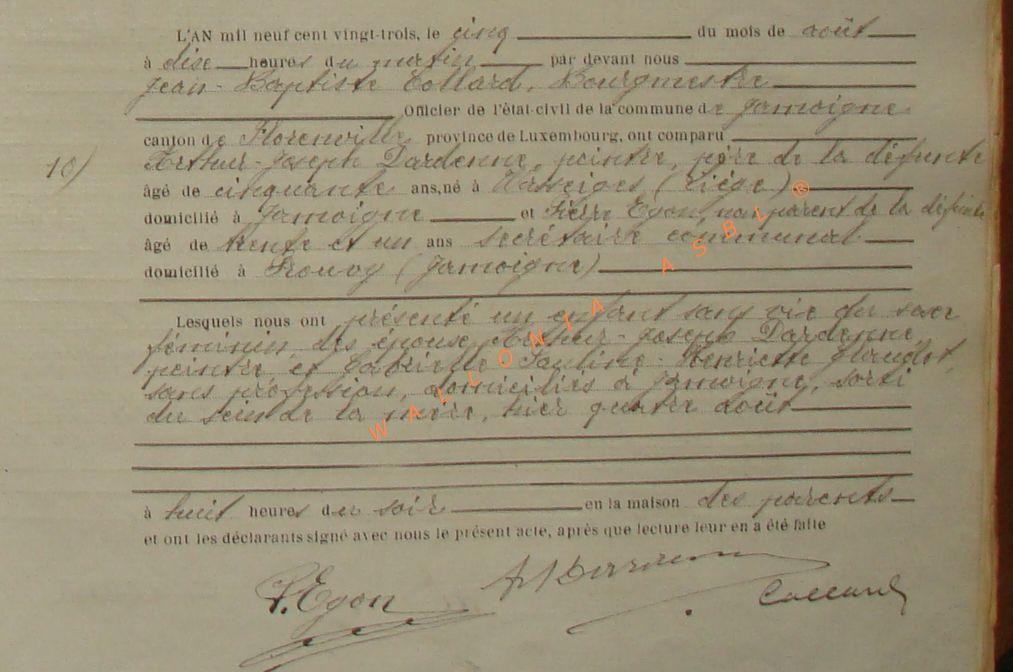 L'AN mil neuf cent vingt-trois, le cinq du mois de août
à dix heures du matin par devant nous
Jean-Baptiste Collard, Bourgmestre
Officier de l'état-civil de la commune de Jamoigne
10) canton de Florenville province de Luxembourg, ont comparu
Arthur-Joseph Dardenne, peintre, père de la défunte
âgé de cinquante ans, né à (Liége)
domicilié à Jamoigne et Pierre Egon, non parent de la défunte
âgé de trente et un ans secrétaire communal
domicilié à Prouvy (Jamoigne)
Lesquels nous ont présenté un enfant sans vie du sexe
féminin, des époux Arthur-Joseph Dardenne,
peintre et Gabrielle Pauline-Henriette
sans profession, domiciliés à Jamoigne, sorti
du sein de la mère, hier quatre août
à huit heures du soir en la maison des parents
et ont les déclarants signé avec nous le présent acte, après que lecture leur en a été faite
P. Egon AJDardenne Collard
WALLONIA ASBL ®